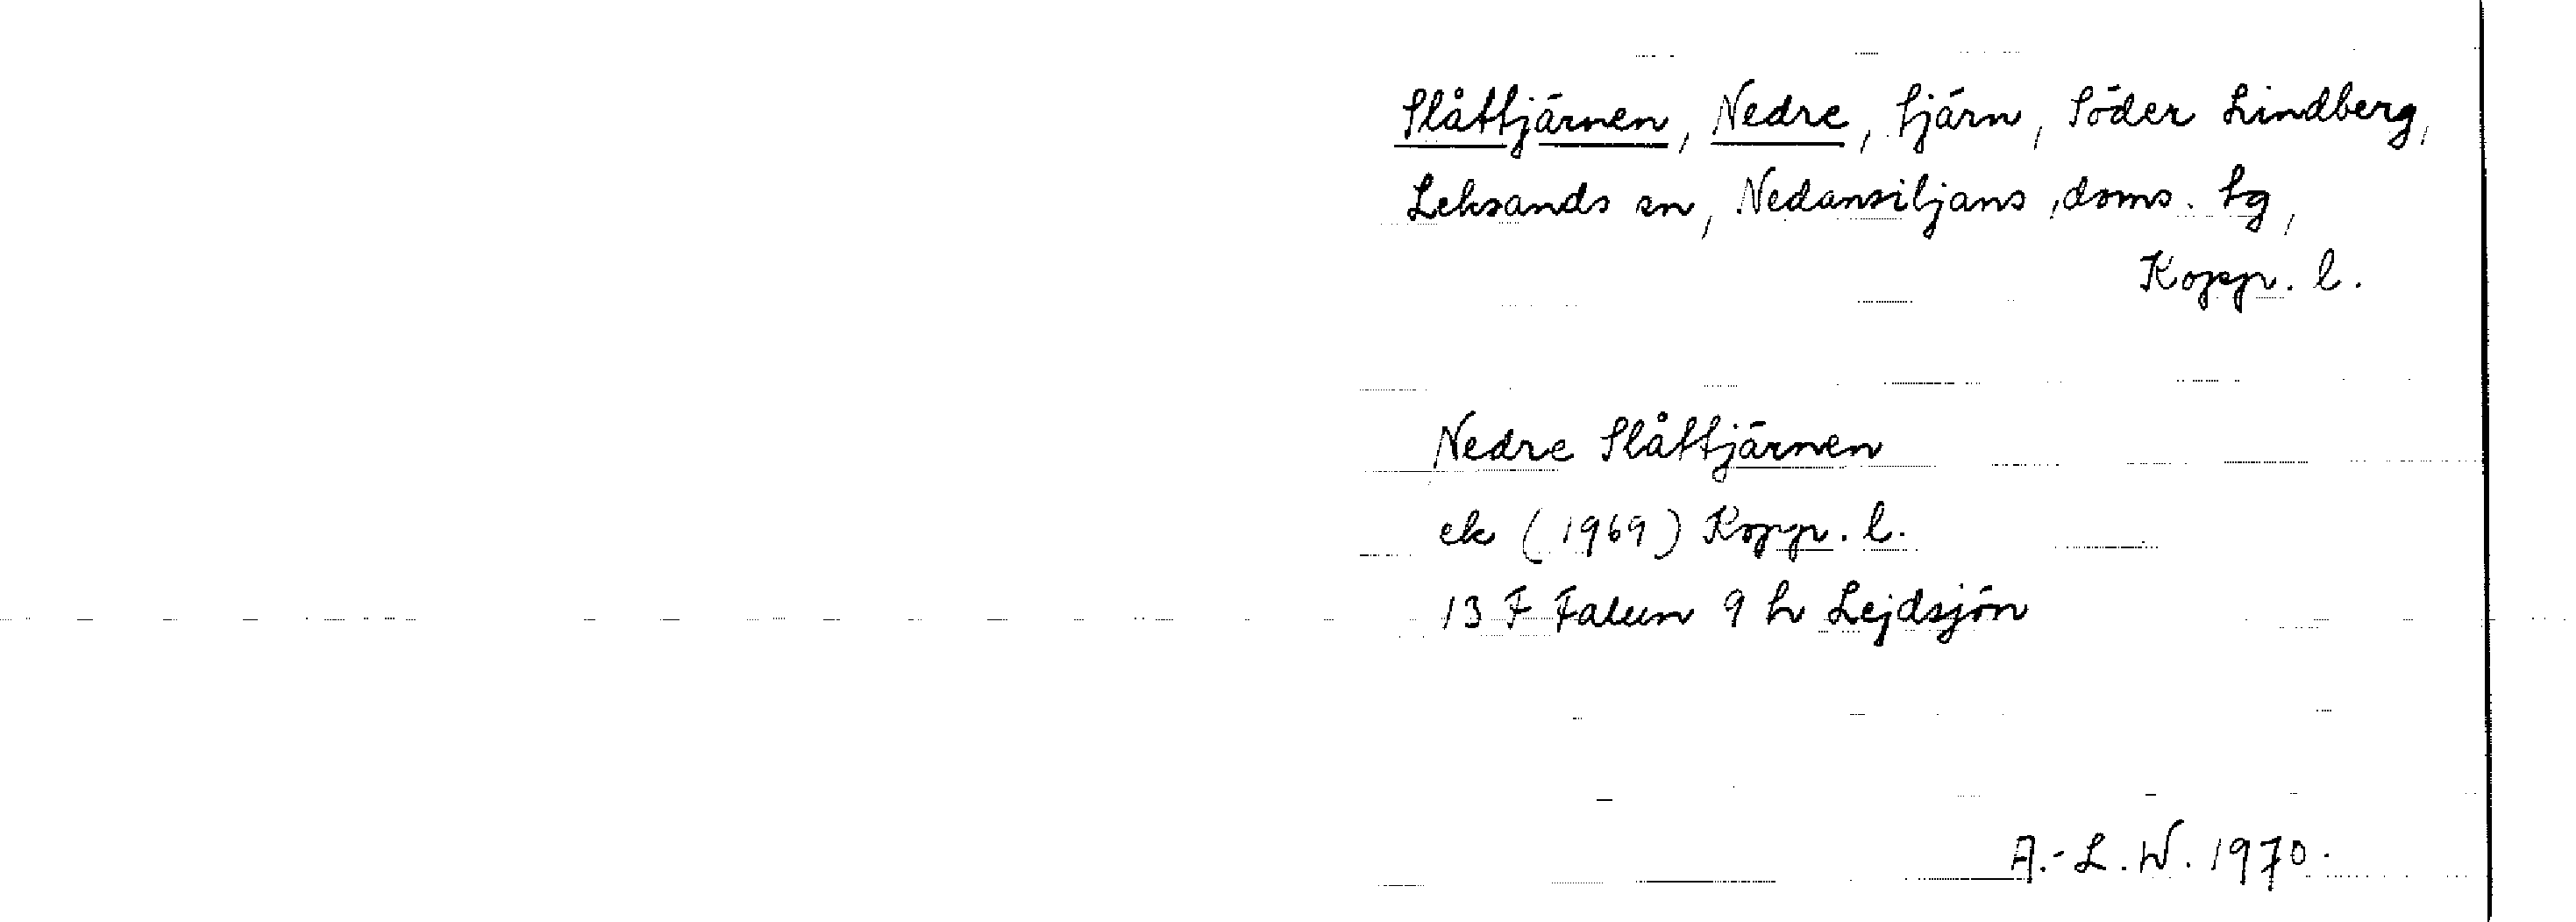 Slåttjärnen, Nedre, tjärn, Söder Lindberg,
Leksands sn, Nedansiljans doms. tg,
Koppr. l.
Nedre Slåttjärnen
ek (1969) Koppr. l.
13 F Falun 9 h Lejdsjön
A.-L. W. 1970.